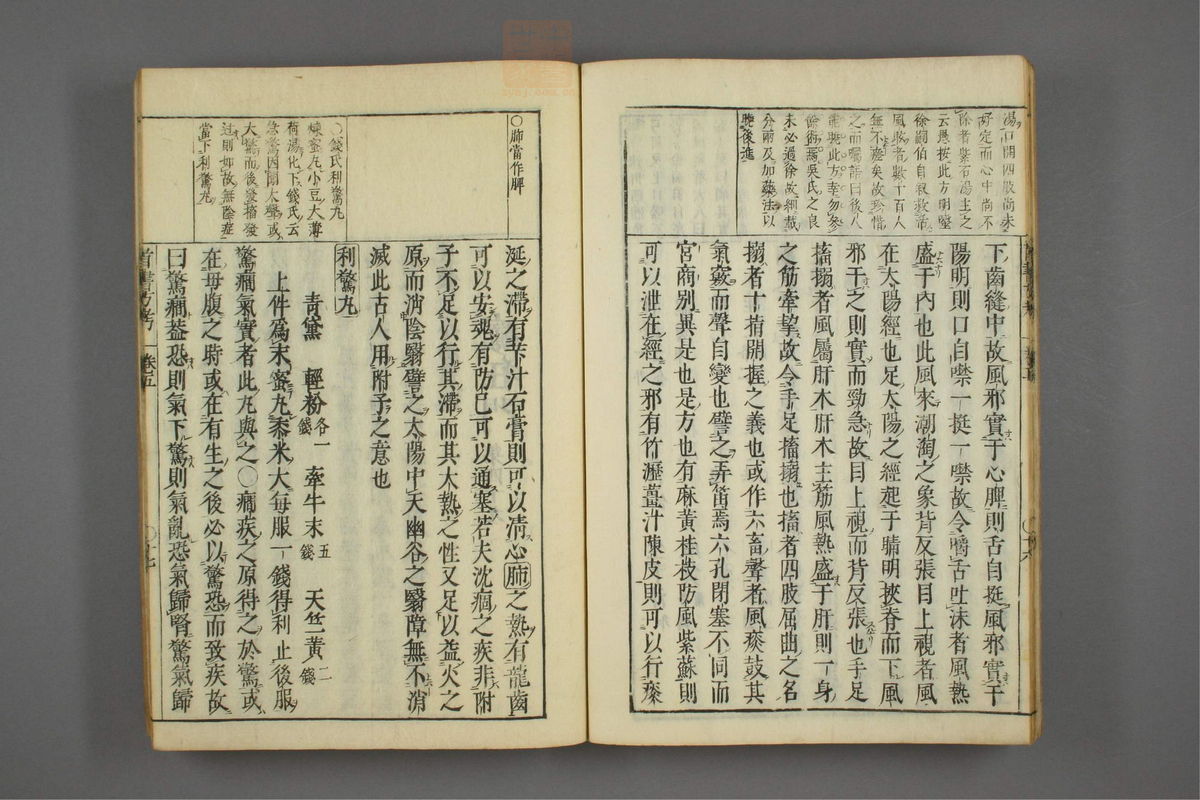 湯口開四肢尚未
好定而心中尚不
除者紫石湯主之
云愚按此方明醫
徐嗣伯自叙救活
風癎者數十百人
無不瘥矣故珍惜
之而囑語曰後八
未必過徐故細戴
分兩及加藥法以
曉後進
下齒縫中故風邪實于心脾則舌自挺風邪實于
陽明則口自噤一挺一噤故令嚼舌吐沫者風熱
盛于內也此風來潮洶之象背反張目上視者風
在太陽經也足太陽之經起于睛明挾脊而下風
邪干之則實而勁急故目上視而背反張也手足
搐搦者風屬肝木肝木主筋風熱盛于肝則一身
之筋牽掣故令手足搐搦也搐者四肢屈曲之名
搦者十指開握之義也或作六畜聲者風痰鼓其
氣竅而聲自變也譬之弄笛焉六孔閉塞不同而
宮商別異是也是方也有麻黃桂枝防風紫蘇則
可以泄在經之邪有竹瀝薑汁陳皮則可以行痰
首書方考
卷五
〇肺當作脾
〇錢氏利驚丸
煉蜜丸小豆大薄
荷湯化下錢氏云
急驚因聞大聲或
大驚而後發搐發
過則如故無陰症
當下利驚丸
涎之滯有芐汁石膏則可以凊心肺之熱有龍齒
可以安魂有防已可以通塞若夫沈痼之疾非附
子不足以行其滯而其大熱之性又足以益火之
原而消陰翳譬之太陽中天幽谷之翳障無不消
滅此古人用附子之意也
利驚丸
青黛 輕粉各一錢 牽牛末五錢 天竺黃二錢
上件為末蜜丸黍米大每服一錢得利止後服
驚癎氣實者此丸與之〇癎疾之原得之於驚或
在母腹之時或在有生之後必以驚恐而致疾故
曰驚癎蓋恐則氣下驚則氣亂恐氣歸腎驚氣歸
首書方考
卷五